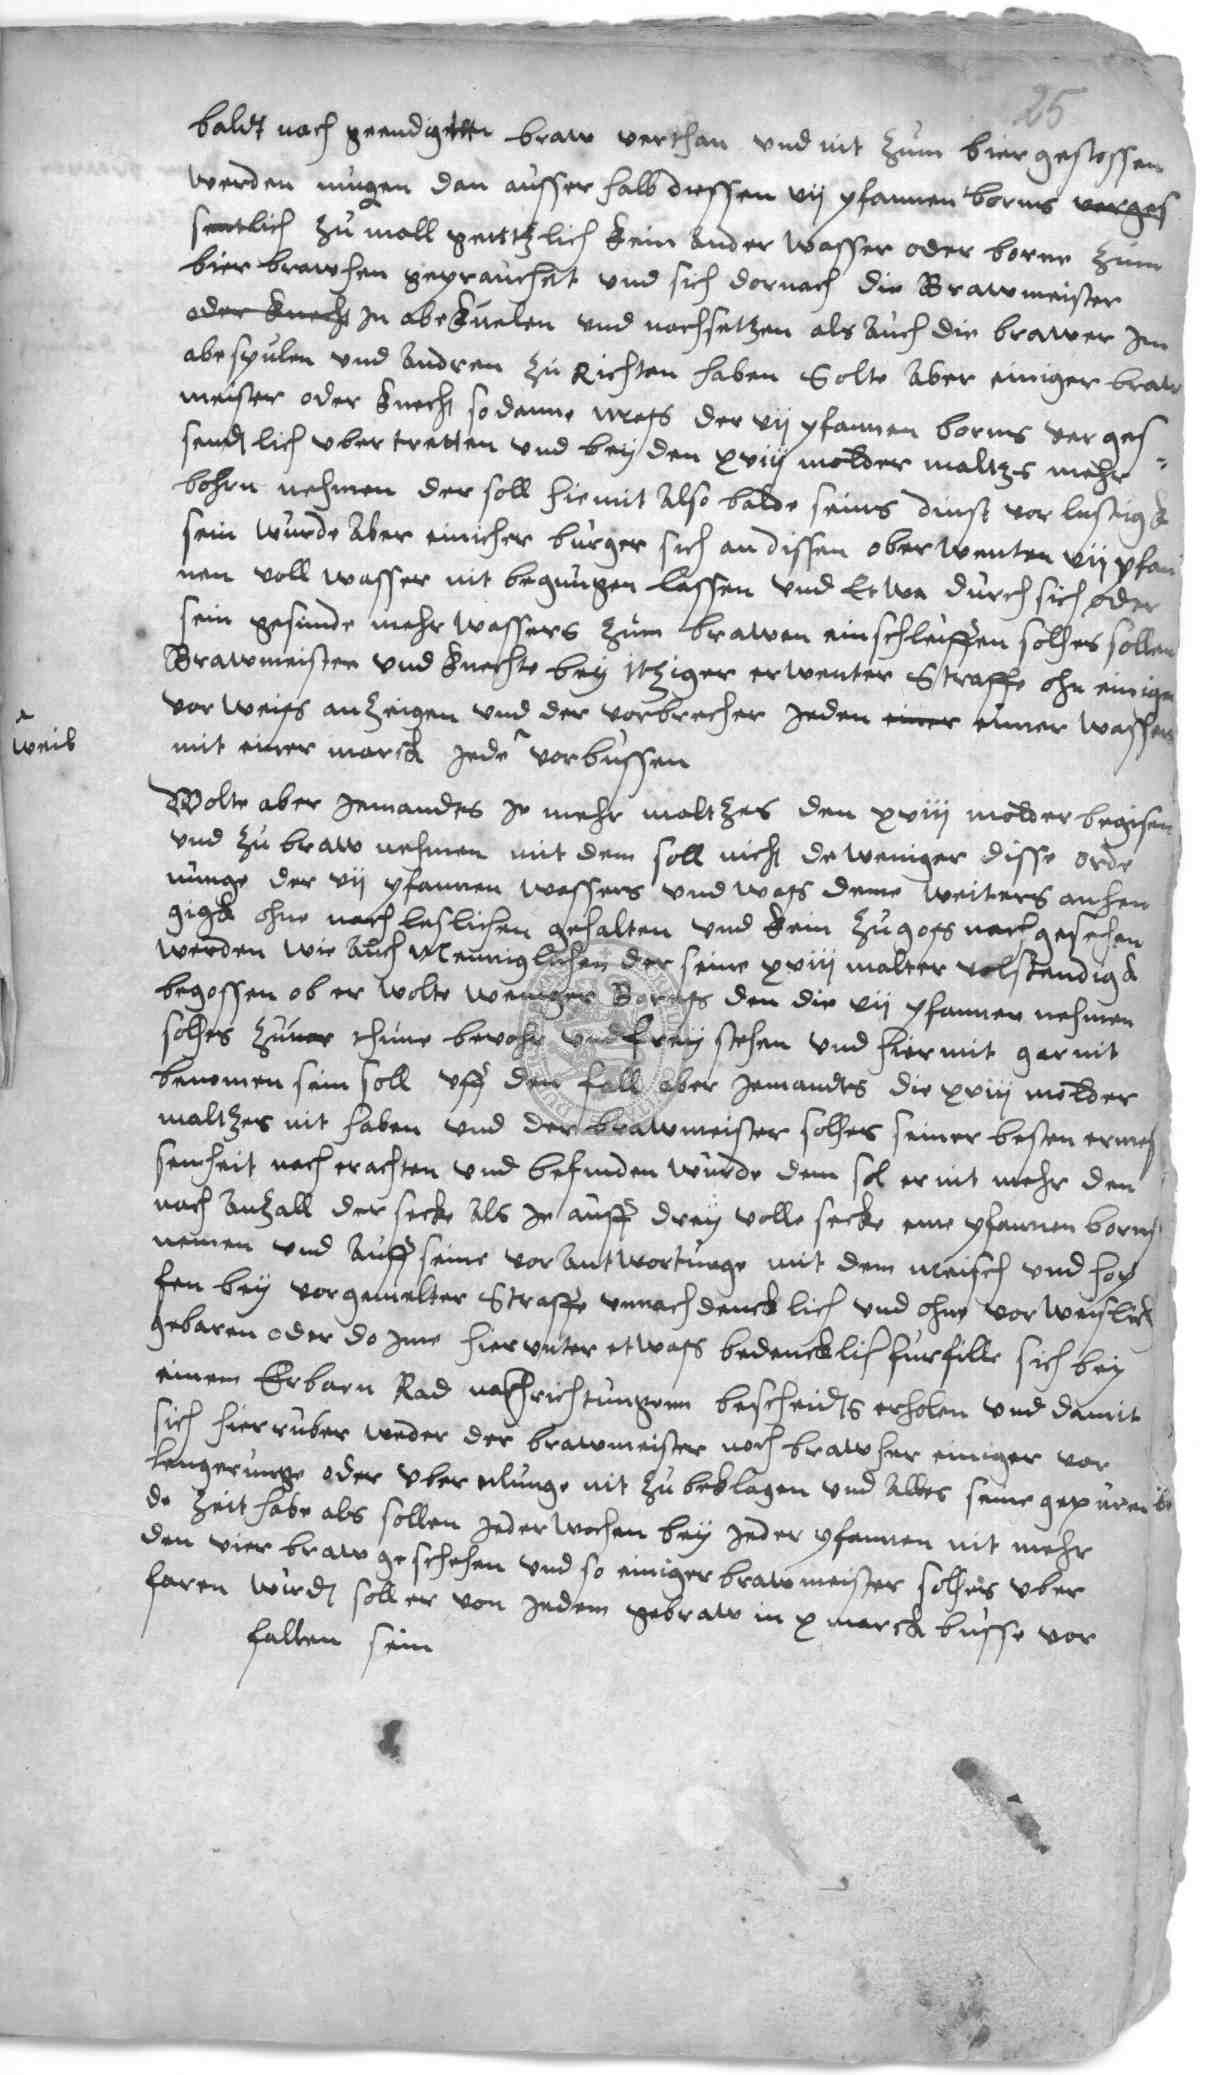 25
baldt nach geendigtem braw verthan vnd nit zum bier gestossen
werden mugen dan ausser halb diessen vij pfannen borns verges
sentlich zu mall gentzlich kein ander wasser oder borne zum
bier brawhen geprauchett vnd sich dornach die Brawmeister
oder knecht in abekuelen vnd nachsetzen als auch die brawer im
abespulen vnd andren zu Richten haben Solte aber einiger braw
meister oder knecht so danne mehs der vij pfannen borns verges=
sendtlich vbertretten vnd bey den xviij molder maltzs mehr
bohrn nehmen der soll hiemit also balde seins dinst vorlustigk
sein wurde aber einicher burger sich an dissen oberwenten vij pfan
nen voll wasser nit begnugen lassen vnd Etwa durch sich oder
sein gesinde mehr wassers zum brawen einschleiffen solhes sollen
Brawmeister vnd knechte bey itziger erwenter Straffe ohn einigen
vorweiss anzeigen vnd der vorbrecher jeden einer eimer wassers
weil
mit einer marck jede vorbussen
Wolte aber jemandes je mehr maltzes den xviij molder begisen
vnd zu braw nehmen mit dem soll nicht de weniger disse orde
nunge der vij pfannen wassers vnd wass deme weiters anhen
gigk ohne nachleslichen gehalten vnd kein zugoss nachgesehen
werden wie auch Menniglichen der seine xviij malter volstendigk
begossen ob er wolte weniger Borns den die vij pfannen nehmen
solhes zuuor thune bevohr vnd frey stehen vnd hiermit gar nit
benomen sein soll vff den fall aber jemandts die xviij molder
maltzes nit haben vnd der brawmeister solhes seiner besten ermes
senheit nach erachten vnd befinden wurde dem sol er nit mehr den
nach anzall der secke als je auff drey volle secke eine pfannen borns
nemen vnd auff seine vorantwortunge mit dem meisch vnd hop
fen bey vorgemelter Straffe vnnachdencklich vnd ohne vorweislich
gebaren oder do ime hierunter etwass bedencklich furfille sich bey
einem Erbarn Rad nachrichtungem bescheidts erholen vnd damit
sich hierruber weder der brawmeister noch brawher einiger vor
lengerunge oder vbereilunge nit zu beklagen vnd alles seine gepuren
de zeit habe als sollen jeder wochen bey jeder pfannen nit mehr
den vier braw geschehen vnd so einiger brawmeister solhes vber
faren wirdt soll er von jedem gebraw in x marck busse vor
fallen sein